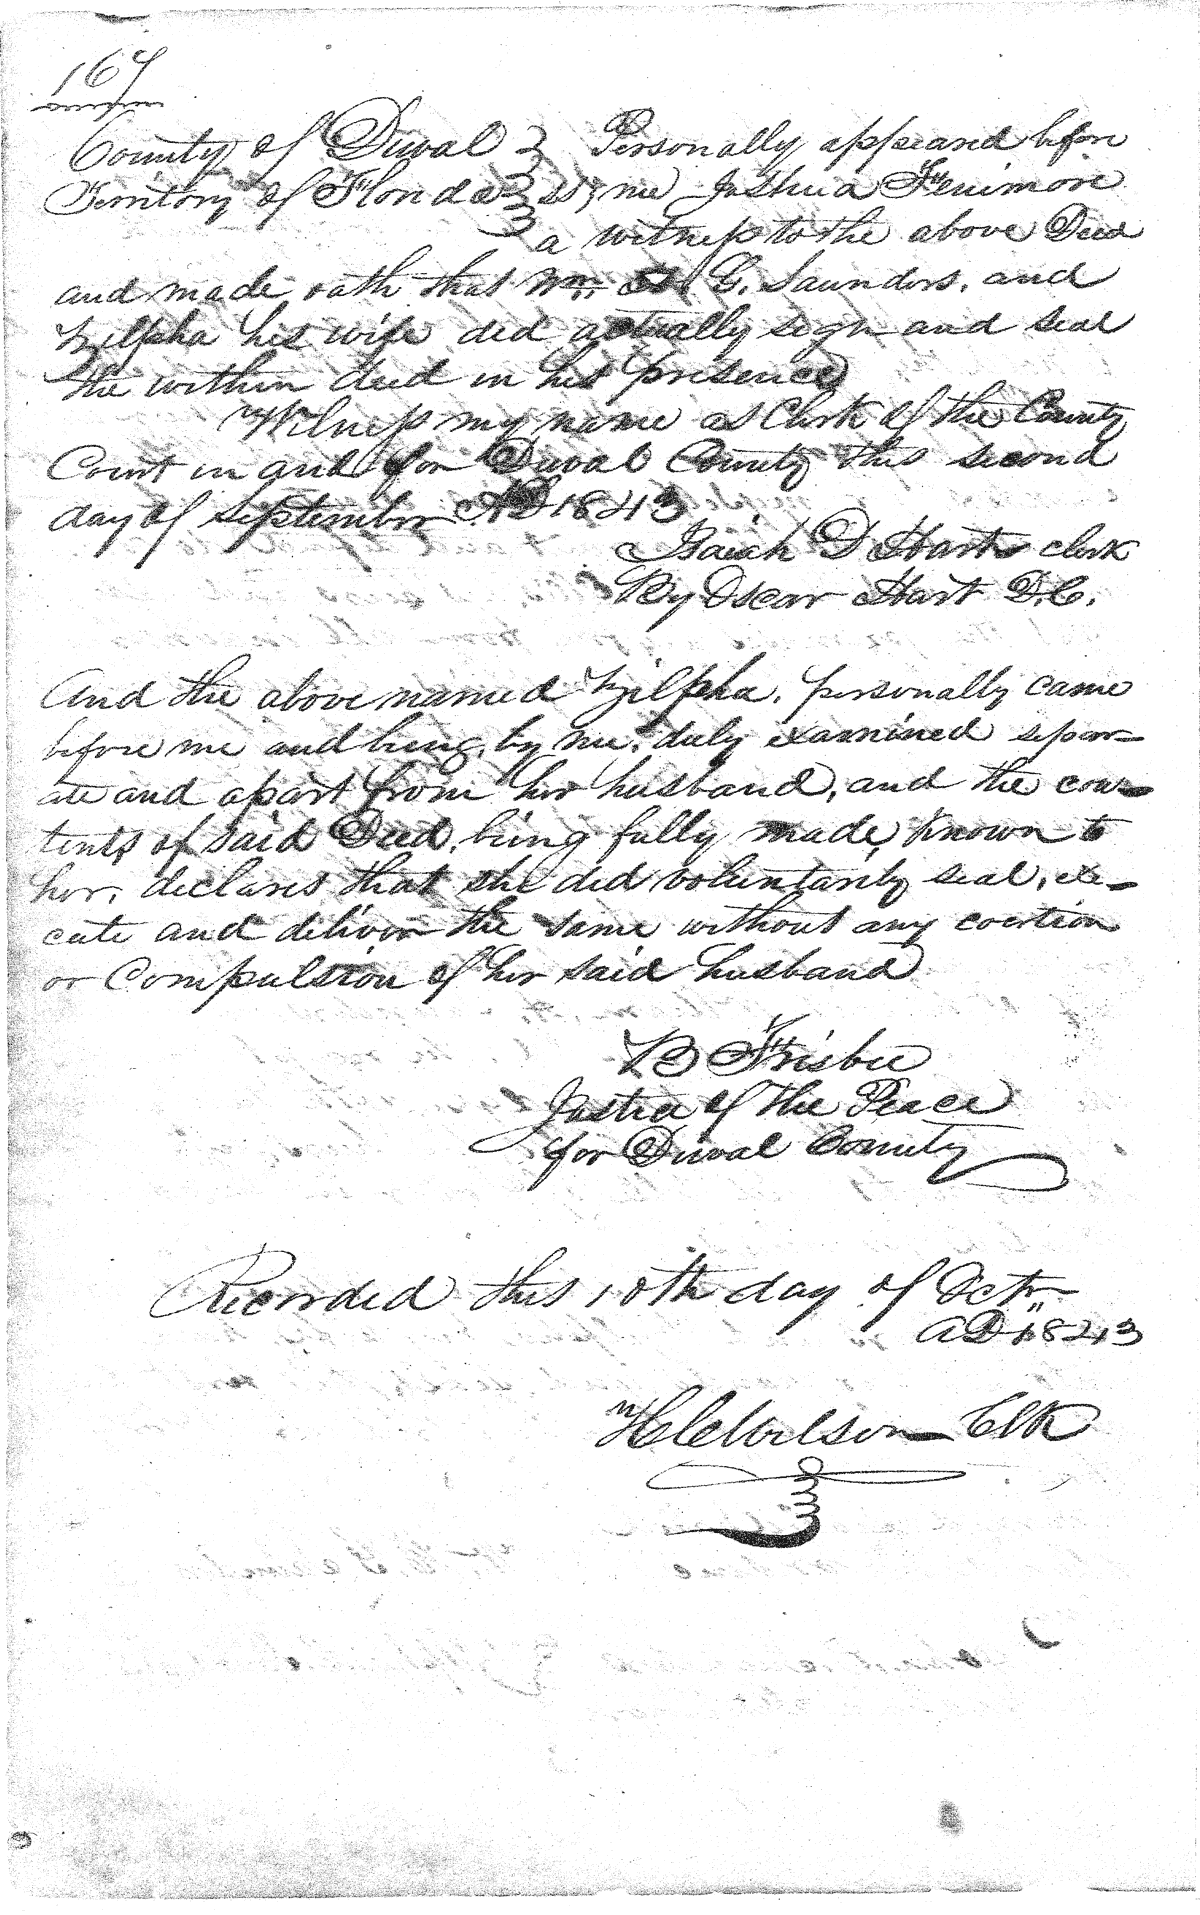 164
County of Duval } Personally appeared before
Territory of Florida } ss; me Joshua Fenimore
a witness to the above Deed
and made oath that Wm. G. Saunders, and
Zilpha his wife did actually sign and seal
the within deed in his presence
Witness my name as Clerk of the County
Court in and for Duval County this second
day of September AD 1843
Isaiah D Hart clerk
By Oscar Hart D.C.
And the above named Zilpha, personally came
before me and being, by me, duly examined separ-
ate and apart from her husband, and the con-
tents of said Deed, being fully made, known to
her, declares that she did voluntarily seal, exe-
cute and deliver the same without any coertion
or Compulsion of her said husband
B Frisbee
Justice of the Peace
for Duval County
Recorded this 10th day of Octr
AD 1843
Wilson Clk